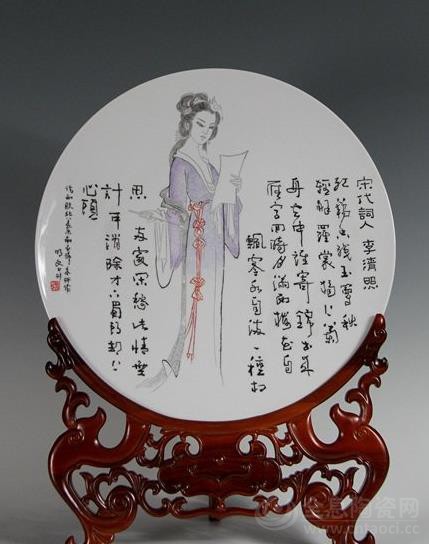 宋代詞人 李清照
紅藕香残玉簟秋
輕解羅裳独上蘭
舟雲中誰寄錦書来
雁字回時月滿西樓花自
飄零水自流一種相
思 兩處閑愁此情無
計可消除才下眉頭却上
心頭
陶瓷网